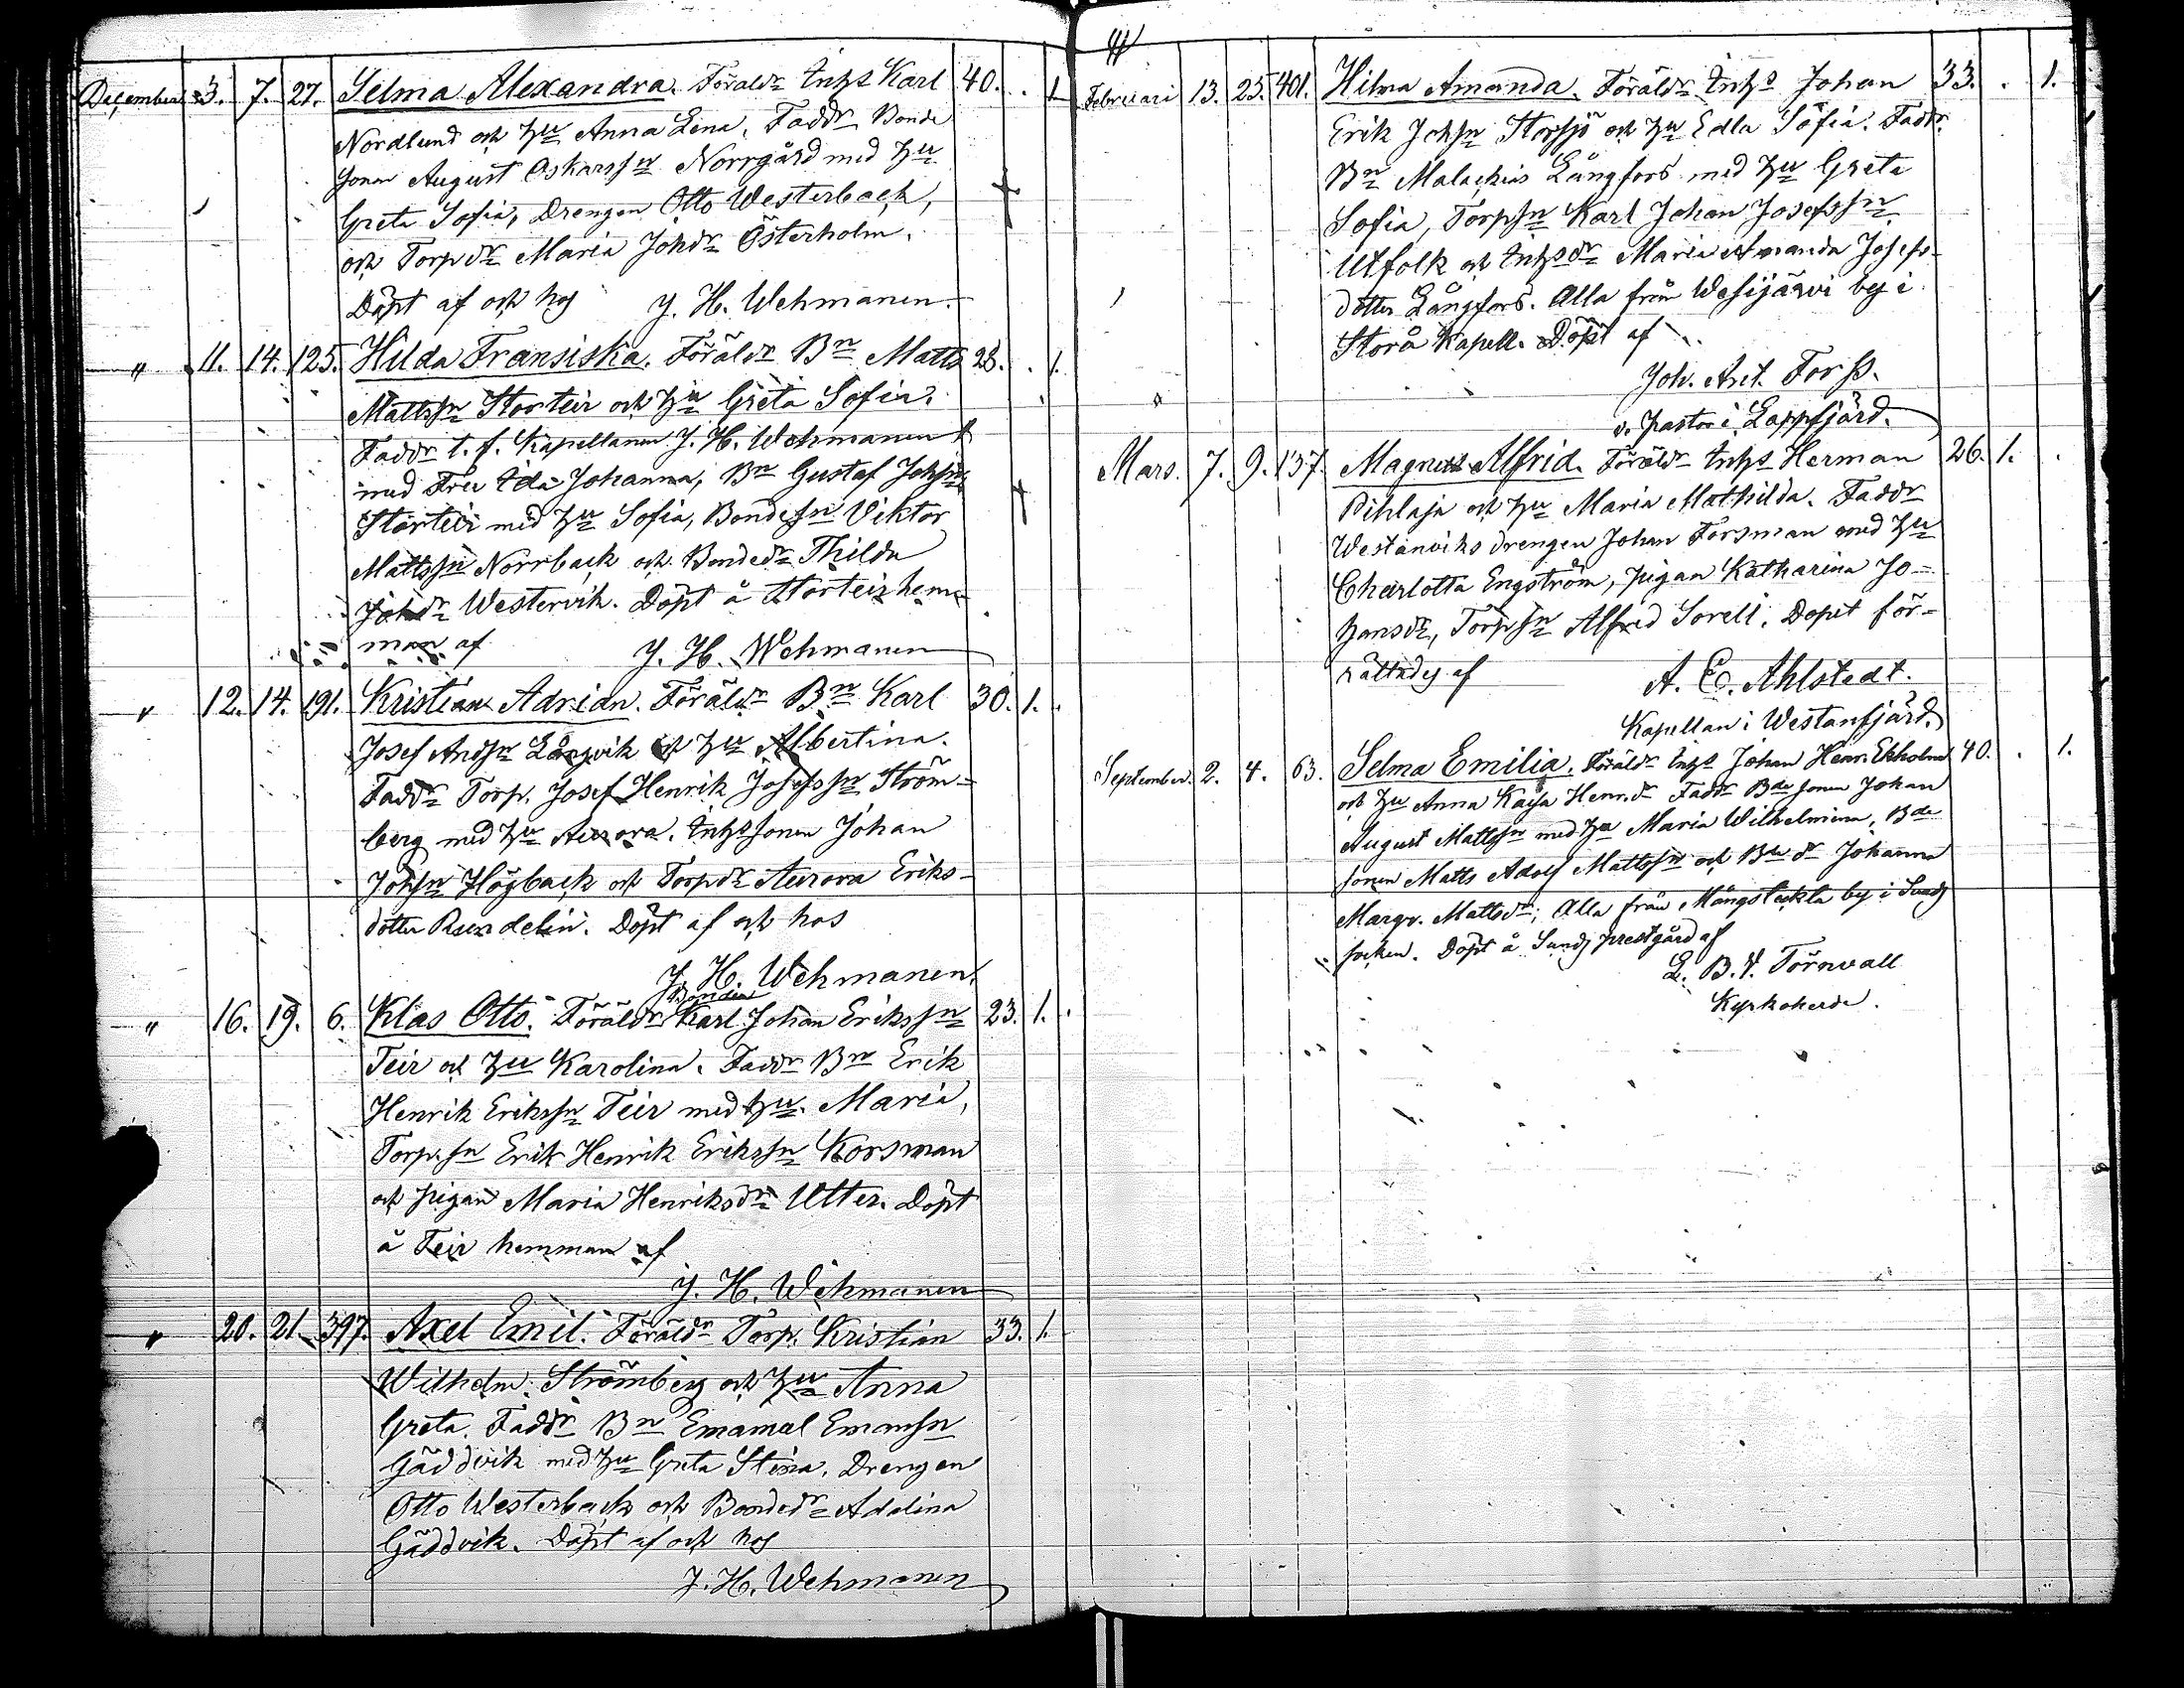 December 3. 7. 27. Selma Alexandra. Föräldr Inhs Karl 40. . 1.
Nordlund och Hu Anna Lena. Faddr Bonde
sonen August Oskarssn Norrgård med Hu
Greta Sofia, Drengen Otto Westerback,
och Torpdr Maria Johdr Österholm.
Döpt af och hos J. H. Wehmanen.
" 11. 14. 125. Hilda Fransiska. Föräldr Bn Matts 28. . 1.
Mattssn Storteir och Hu Greta Sofia.
Faddr t. f. Kapellanen J. H. Wehmanen
med Fru Ida Johanna, Bn Gustaf Johssn
Storteir med Hu Sofia, Bondesn Viktor
Mattssn Norrback och Bondedr Thilda
Johdr Westervik. Döpt å Storteir hem-
man af J. H. Wehmanen
" 12. 14. 191. Kristian Adrian. Föräldr Bn Karl 30. 1. .
Josef Andsn Långvik och Hu Albertina.
Faddr Torp. Josef Henrik Josefssn Ström-
berg med Hu Aurora. Inhssonen Johan
Johsn Högback och Torpdr Aurora Eriks-
dotter Rundelin. Döpt af och hos
J. H. Wehmanen.
" 16. 19. 6. Klas Otto. Föräldr Bonden Karl Johan Erikssn 23. 1. .
Teir och Hu Karolina. Faddr Bn Erik
Henrik Erikssn Teir med Hu Maria,
Torp.sn Erik Henrik Erikssn Korsman
och pigan Maria Henriksdr Utter. Döpt
å Teir hemman af
J. H. Wehmanen
" 20. 21. 397. Axel Emil. Föräldr Torp. Kristian 33. 1.
Wilhelm Strömberg och Hu Anna
Greta. Faddr Bn Emamal Emamsn
Gäddvik med Hu Greta Stina. Drengen
Otto Westerback och Bondedr Adelina
Gäddvik. Döpt af och hos
J. H. Wehmanen
Februari 13. 25. 401. Hilma Amanda. Föräldr Inhs Johan 33. . 1.
Erik Johsn Storsjö och Hu Edla Sofia. Faddr.
Bn Malachias Långfors med Hu Greta
Sofia, Torpsn Karl Johan Josefssn
Utfolk och Inhsdr Maria Amanda Josefs-
dotter Långfors. Alla från Wesijärvi by i
Storå Kapell. Döpt af
Joh. Ant. Forss.
v. pastor i Lappfjärd.
Mars. 7. 9. 137. Magnus Alfrid. Föräldr Inhs Herman 26. 1. .
Pihlaja och Hu Maria Mathilda. Faddr
Westanviks drengen Johan Forsman med Hu
Charlotta Engström, pigan Katharina Jo-
hansdr, Torpsn Alfred Sorell. Döpt för-
rättades af A. E. Ahlstedt.
Kapellan i Westanfjärd.
September. 2. 4. 63. Selma Emilia. Föräldr Inhs Johan Henr. Ekholm 40. . 1.
och Hu Anna Kajsa Henr.dr Faddr Bde sonen Johan
August Mattssn med Hu Maria Wilhelmina, Bde
sonen Matts Adolf Mattssn och Bde dr Johanna
Margr. Mattsdr; Alla från Mångstekta by i Sunds
socken. Döpt å Sunds prestgård af
L. B. V. Törnvall
Kyrkoherde.